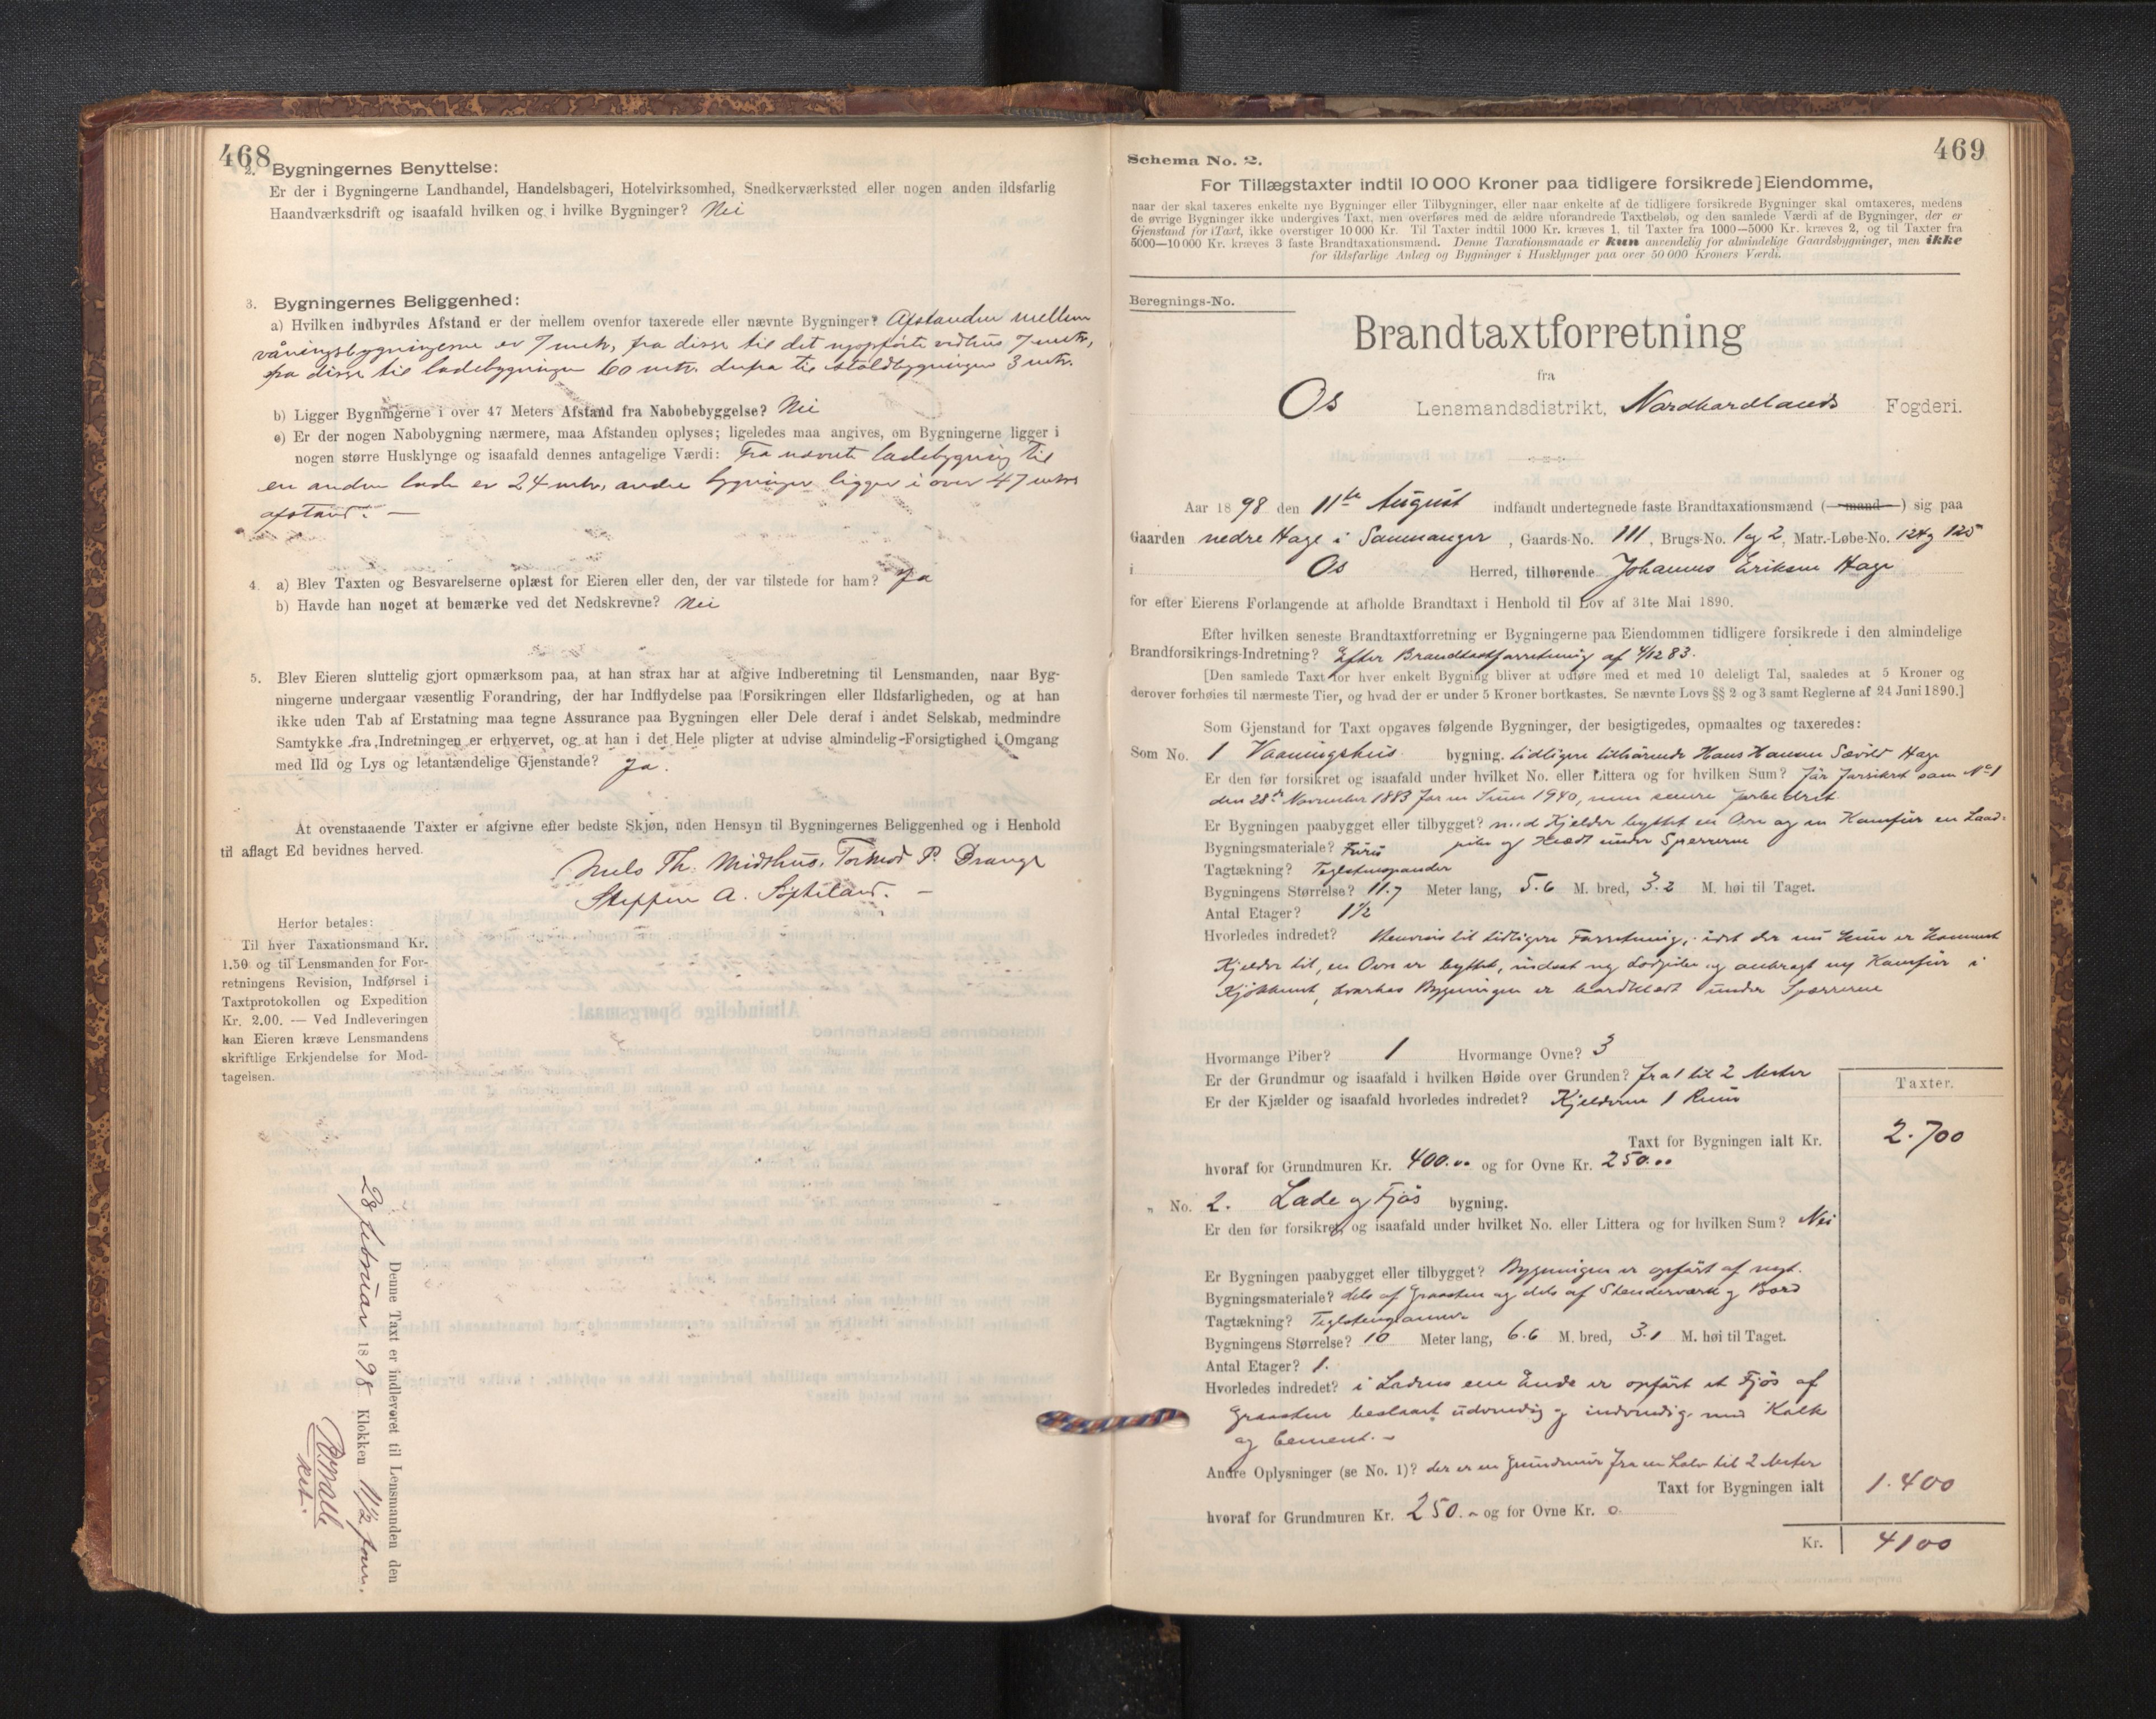 468
2. Bygningernes Benyttelse:
Er der i Bygningerne Landhandel, Handelsbageri, Hotelvirksomhed, Snedkerværksted eller nogen anden ildsfarlig
Haandværksdrift og isaafald hvilken og i hvilke Bygninger? Nei
3. Bygningernes Beliggenhed:
a) Hvilken indbyrdes Afstand er der mellem ovenfor taxerede eller nævnte Bygninger? Afstanden mellem
våningsbygningerne er 7 metr, fra disse til det nyopførte vedhus 7 metr,
fra disse til ladebygningen 60 mtr. derfra til staldbygningen 3 mtr.
b) Ligger Bygningerne i over 47 Meters Afstand fra Nabobebyggelse? Nei
c) Er der nogen Nabobygning nærmere, maa Afstanden oplyses; ligeledes maa angives, om Bygningerne ligger i
nogen større Husklynge og isaafald dennes antagelige Værdi: Fra nævnte ladebygning til
en anden lade er 24 mtr, andre bygninger ligger i over 47 mtrs
afstand. —
4. a) Blev Taxten og Besvarelserne oplæst for Eieren eller den, der var tilstede for ham? Ja
b) Havde han noget at bemærke ved det Nedskrevne? Nei
5. Blev Eieren sluttelig gjort opmærksom paa, at han strax har at afgive Indberetning til Lensmanden, naar Byg-
ningerne undergaar væsentlig Forandring, der har Indflydelse paa Forsikringen eller Ildsfarligheden, og at han
ikke uden Tab af Erstatning maa tegne Assurance paa Bygningen eller Dele deraf i andet Selskab, medmindre
Samtykke fra Indretningen er erhvervet, og at han i det Hele pligter at udvise almindelig Forsigtighed i Omgang
med Ild og Lys og letantændelige Gjenstande? Ja.
At ovenstaaende Taxter er afgivne efter bedste Skjøn, uden Hensyn til Bygningernes Beliggenhed og i Henhold
til aflagt Ed bevidnes herved.
Nils Th. Midthus, Tormod P. Drange
Steffen A. Søfteland. —
Herfor betales:
Til hver Taxationsmand Kr.
1.50 og til Lensmanden for For-
retningens Revision, Indførsel i
Taxtprotokollen og Expedition
Kr. 2.00. — Ved Indleveringen
kan Eieren kræve Lensmandens
skriftlige Erkjendelse for Mod-
tagelsen.
Denne Taxt er indleveret til Lensmanden den
28 februar 1898 Klokken 11 1/2 form.
469
Schema No. 2.
For Tillægstaxter indtil 10 000 Kroner paa tidligere forsikrede Eiendomme,
naar der skal taxeres enkelte nye Bygninger eller Tilbygninger, eller naar enkelte af de tidligere forsikrede Bygninger skal omtaxeres, medens
de øvrige Bygninger ikke undergives Taxt, men overføres med de ældre uforandrede Taxtbeløb, og den samlede Værdi af de Bygninger, der er
Gjenstand for Taxt, ikke overstiger 10 000 Kr. Til Taxter indtil 1000 Kr. kræves 1, til Taxter fra 1000—5000 Kr. kræves 2, og til Taxter fra
5000—10 000 Kr. kræves 3 faste Brandtaxationsmænd. Denne Taxationsmaade er kun anvendelig for almindelige Gaardsbygninger, men ikke
for ildsfarlige Anlæg og Bygninger i Husklynger paa over 50 000 Kroners Værdi.
Beregnings-No.
Brandtaxtforretning
fra
Os Lensmandsdistrikt, Nordhordlands Fogderi.
Aar 1898 den 11te August indfandt undertegnede faste Brandtaxationsmænd (—mand—) sig paa
Gaarden nedre Hage i Sammanger, Gaards-No. 111, Brugs-No. 1 og 2, Matr.-Løbe-No. 124 og 125
i Os Herred, tilhørende Johannes Eriksen Hage
for efter Eierens Forlangende at afholde Brandtaxt i Henhold til Lov af 31te Mai 1890.
Efter hvilken seneste Brandtaxtforretning er Bygningerne paa Eiendommen tidligere forsikrede i den almindelige
Brandforsikrings-Indretning? Efter Brandtaxtforretning af 4/12 83.
[Den samlede Taxt for hver enkelt Bygning bliver at udføre med et med 10 deleligt Tal, saaledes at 5 Kroner og
derover forhøies til nærmeste Tier, og hvad der er under 5 Kroner bortkastes. Se nævnte Lovs §§ 2 og 3 samt Reglerne af 24 Juni 1890.]
Som Gjenstand for Taxt opgaves følgende Bygninger, der besigtigedes, opmaaltes og taxeredes:
Som No. 1 Vaaningshus bygning. tidligere tilhørende Hans Hansen Sævild Hage
Er den før forsikret og isaafald under hvilket No. eller Littera og for hvilken Sum? før forsikret som No 1
den 28de November 1883 for en Sum 1940, men senere forbedret
Er Bygningen paabygget eller tilbygget? med Kjelder byttet en Ovn og en Komfur en Lood-
Bygningsmateriale? Furu pibe og klædt under Sperrerne
Tagtækning? Teglstenspander
Bygningens Størrelse? 11.7 Meter lang, 5.6 M. bred, 3.2 M. høi til Taget.
Antal Etager? 1 1/2
Hvorledes indredet? Henvises til tidligere Forretning, idet der nu kun er kommet
Kjelder til, en Ovn er byttet, indsat ny Lodpibe og anbragt ny Komfur i
Kjøkkenet, hvorhos Bygningen er bordklædt under Sperrerne
Hvormange Piber? 1 Hvormange Ovne? 3
Er der Grundmur og isaafald i hvilken Høide over Grunden? fra 1 til 2 Meter
Er der Kjælder og isaafald hvorledes indredet? Kjelderen 1 Rum
Taxter.
Taxt for Bygningen ialt Kr. 2.700
hvoraf for Grundmuren Kr. 400.00 og for Ovne Kr. 250.00
„ No. 2. Lade og Fjøs bygning.
Er den før forsikret og isaafald under hvilket No. eller Littera og for hvilken Sum? Nei
Er Bygningen paabygget eller tilbygget? Bygningen er opført af nyt.
Bygningsmateriale? dels af Graasten og dels af Stenderværk og Bord
Tagtækning? Teglstenspanner
Bygningens Størrelse? 10 Meter lang, 6.6 M. bred, 3.1 M. høi til Taget.
Antal Etager? 1.
Hvorledes indredet? i Ladens ene Ende er opført et Fjøs af
Graasten beslaaet udvendig og indvendig med Kalk
og Cement. —
Andre Oplysninger (se No. 1)? der er en Grundmur fra en halv til 2 Meter
Taxt for Bygningen ialt 1.400
hvoraf for Grundmuren Kr. 250.- og for Ovne Kr. 0.
Kr. 4100